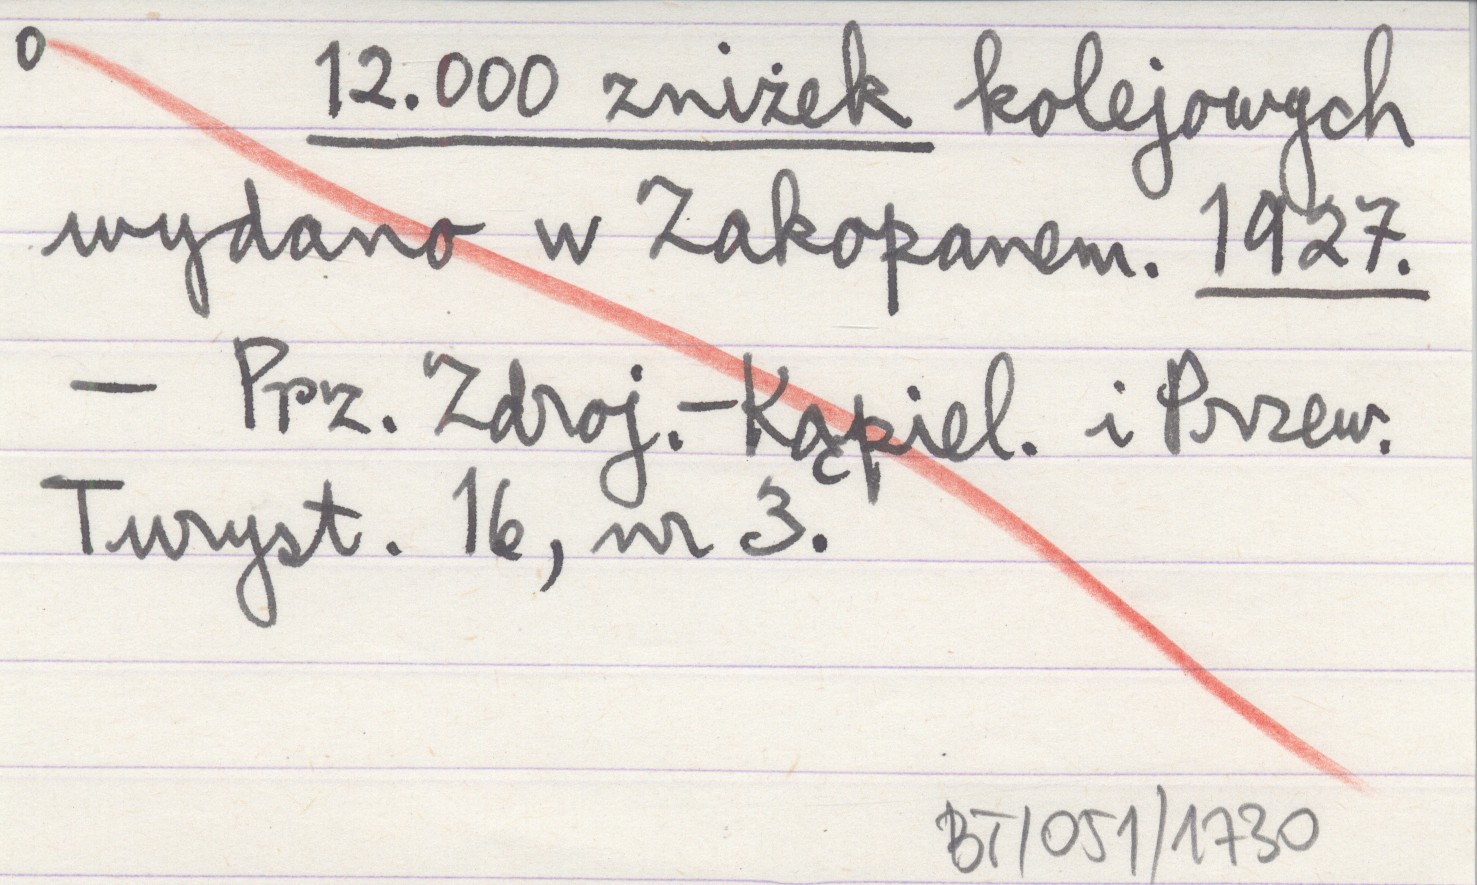 0 12.000 zniżek kolejowych
wydano w Zakopanem. 1927.
— Ppz. Zdroj.-Kąpiel. i Przew.
Turyst. 16, nr 3.
BT/051/1730